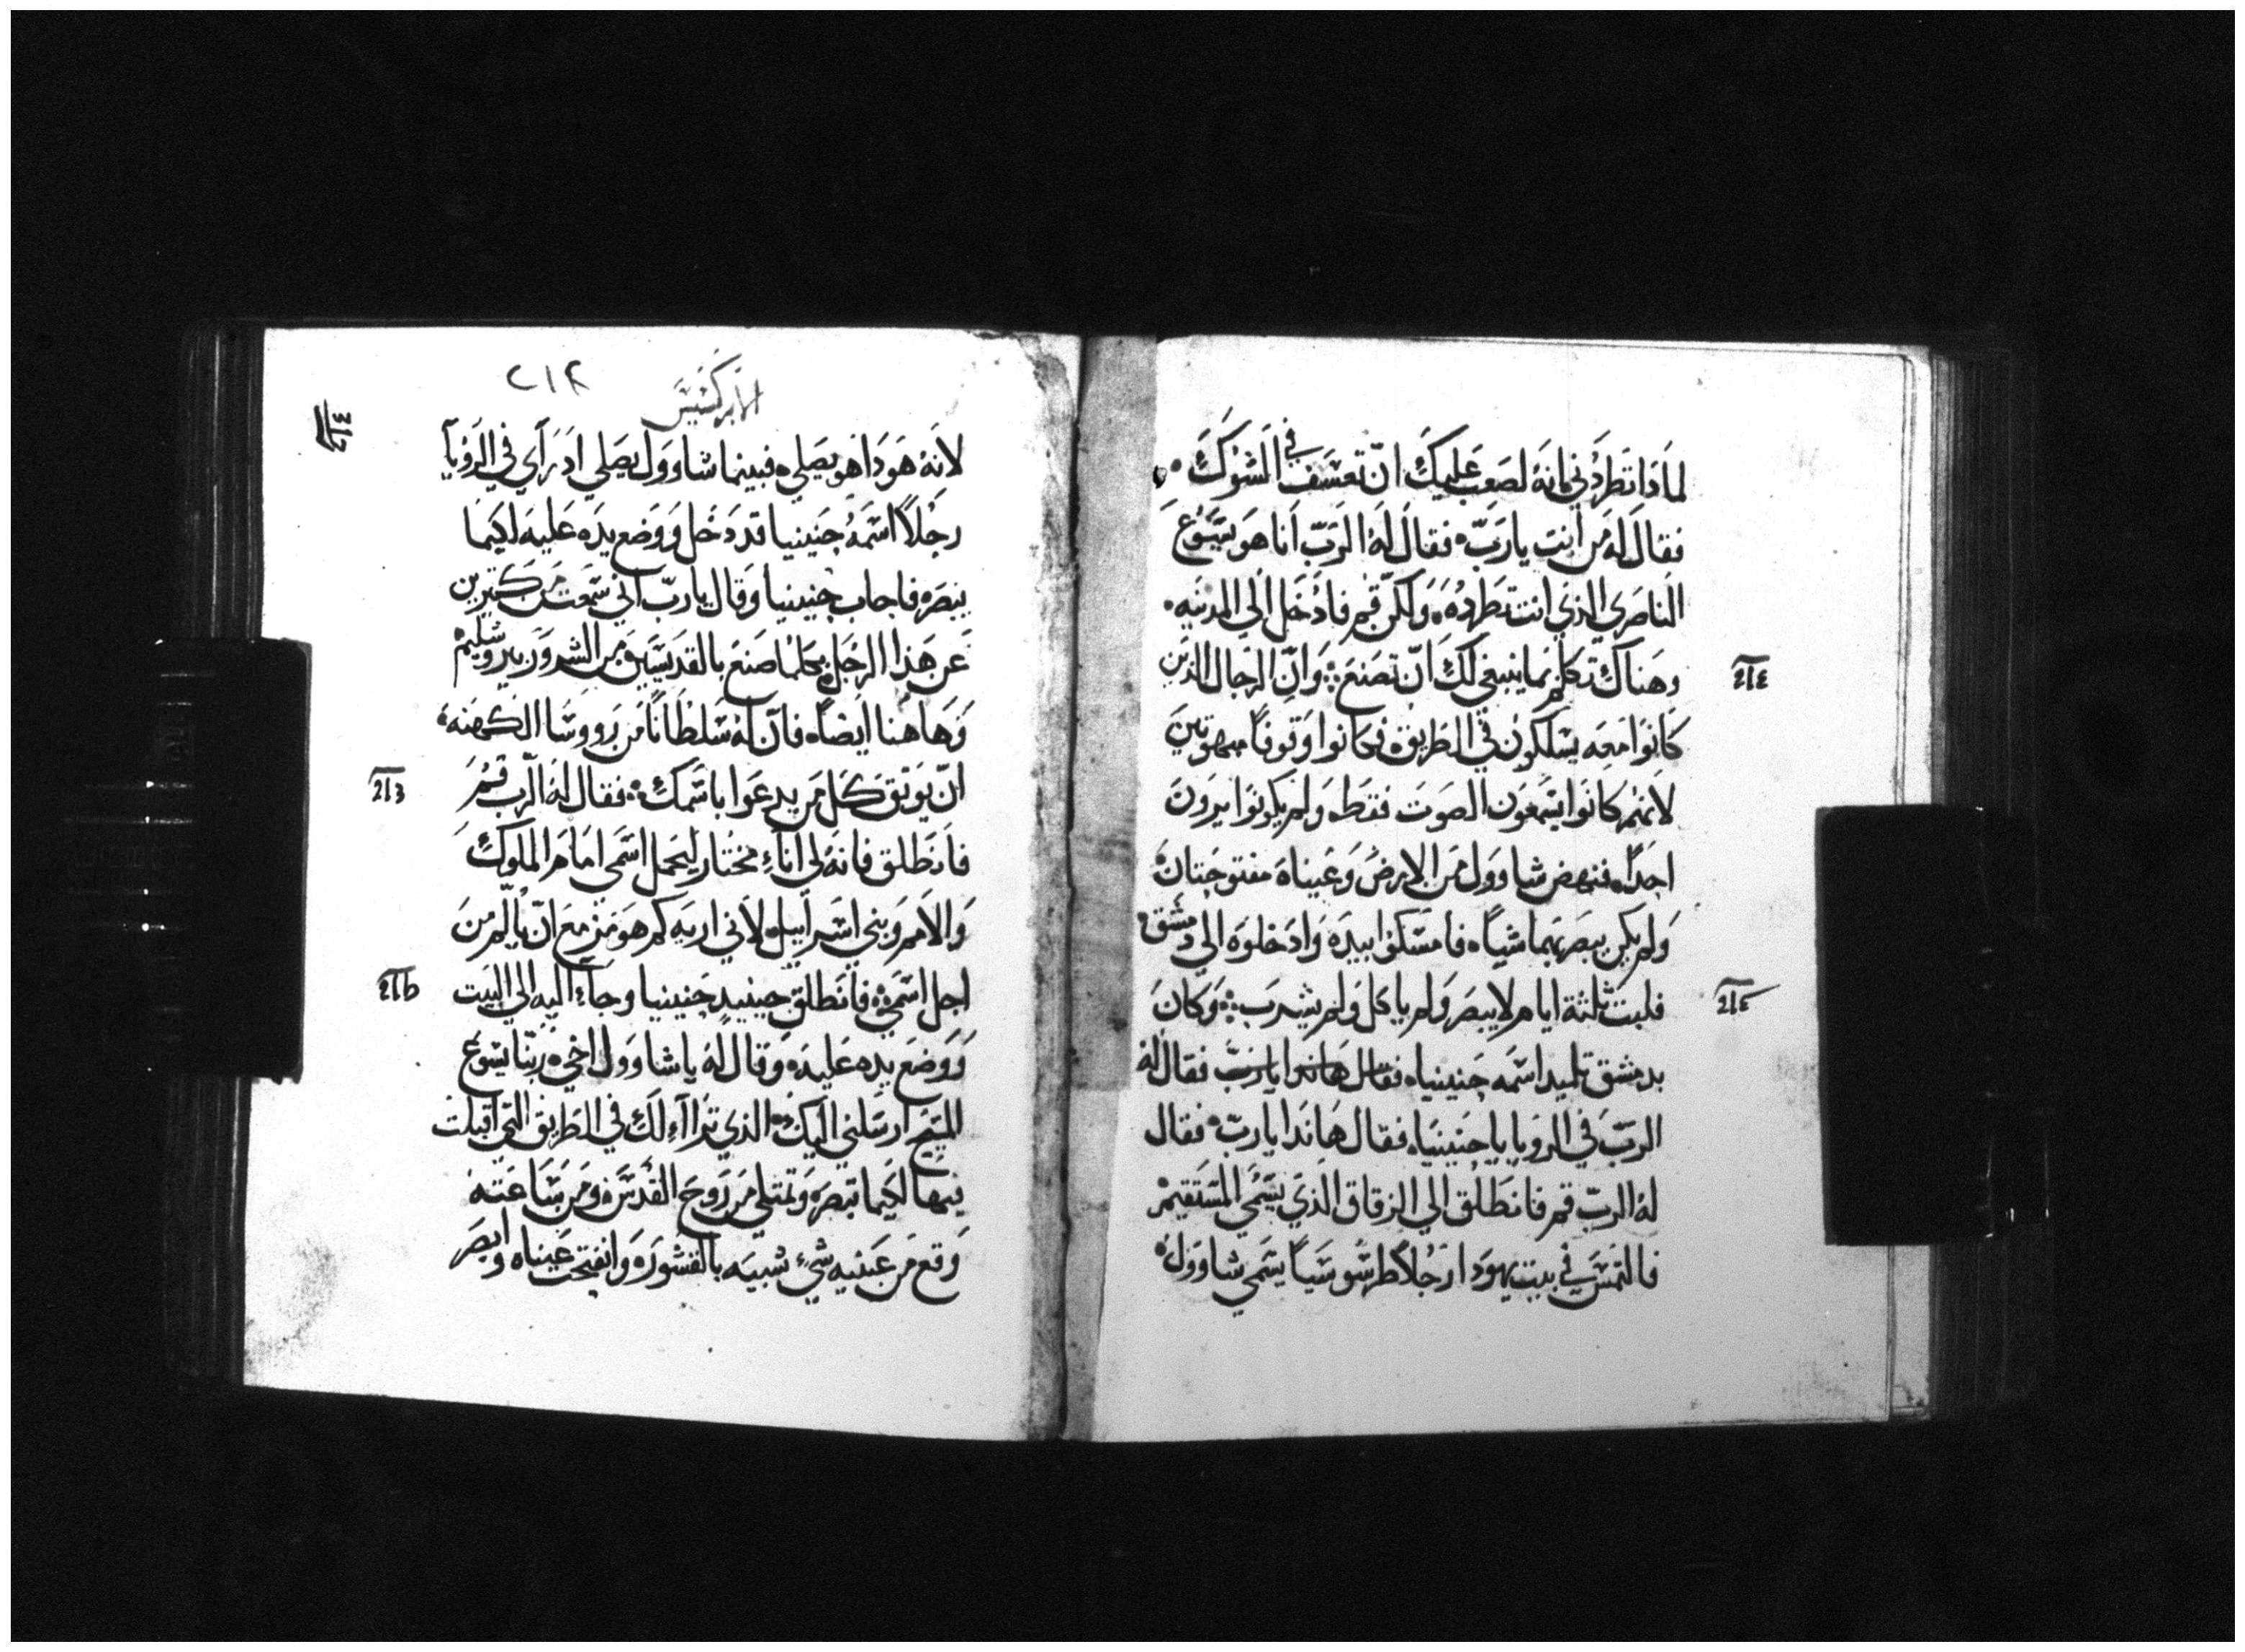 لماذا تطردني فانه لصعب عليك ان تعسف في الشوك
فقال له من انت يارب فقال له الرب انا هو يسوع
الناصري الذي انت تطرده ولكن قم فادخل الي المدينه
وهناك تكلم بما ينبغي لك ان تصنع وان الرجال الذين
كانوا معه يسلكون في الطريق فكانوا وقوفا مبهوتين
لانهم كانوا يسمعون الصوت فقط ولم يكونوا يرون
احدا فنهض شاوول من الارض وعيناه مفتوحتان
ولم يكن يبصر بهما شيا فامسكوا بيده وادخلوه الي دمشق
فلبث ثلثة ايام لا يبصر ولم ياكل ولم يشرب وكان
بدمشق تلميد اسمه حنينيا فقال هانذا يارب فقال له
الرب في الرويا يا حنينيا فقال هانذا يارب فقال
له الرب قم فانطلق الي الزقاق الذي يسمي المستقيم
فالتمس في بيت يهودا رجلا طرسوسيا يسمي شاوول
الابركسيس
لانه هوذا هو يصلي فبينما شاوول يصلي اذ راي في الرويا
رجلا اسمه حنينيا قد دخل ووضع يده عليه لكيما
يبصر فاجاب حنينيا وقال يارب اني سمعت من كتيرين
عن هذا الرجل بكلما صنع بالقديسين من الشرور بيروشليم
وهاهنا ايضا فان له سلطانا من رووسا الكهنه
ان يوتق كل من يدعوا باسمك فقال له الرب قم
فانطلق فانه لي اناء مختار ليحمل اسمي امام الملوك
والامم وبني اسراييل لاني اريه كم هو مزمع ان يالم من
اجل اسمي فانطلق حينيد حنينيا وجاء اليه الي البيت
ووضع يده عليه وقال له يا شاوول اخي ربنا يسوع
المسيح ارسلني اليك الذي تراآء لك في الطريق التي اقبلت
فيها لكيما تبصر وتمتلي من روح القدس ومن ساعته
وقع من عينيه شيء شبيه بالقشور وانفتحت عيناه وابصر